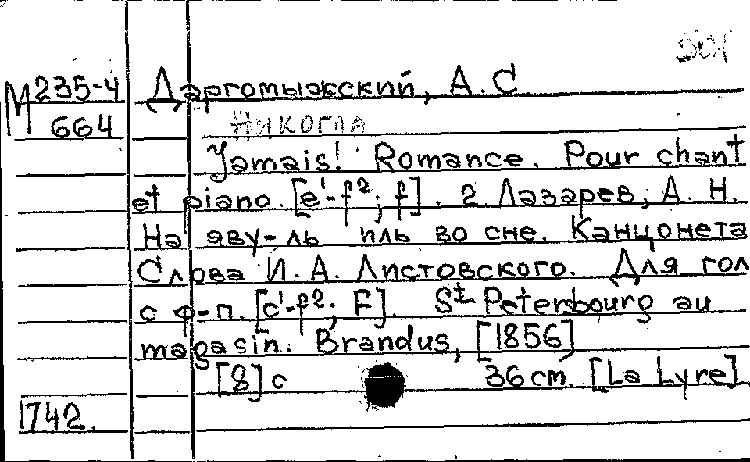 501
М 235-4 Даргомыжский, А. С
664 Никогда
Jamais! Romance. Pour chant
et piano. [e¹-f²; f]. 2. Лазарев, А. Н.
На яву-ль иль во сне. Канцонета
Слова И. А. Листовского. Для гол
с ф-п. [c¹-f²; F]. St Peterbourg au
magasin. Brandus, [1856]
[8] с 36 cm [La Lyre]
1742.